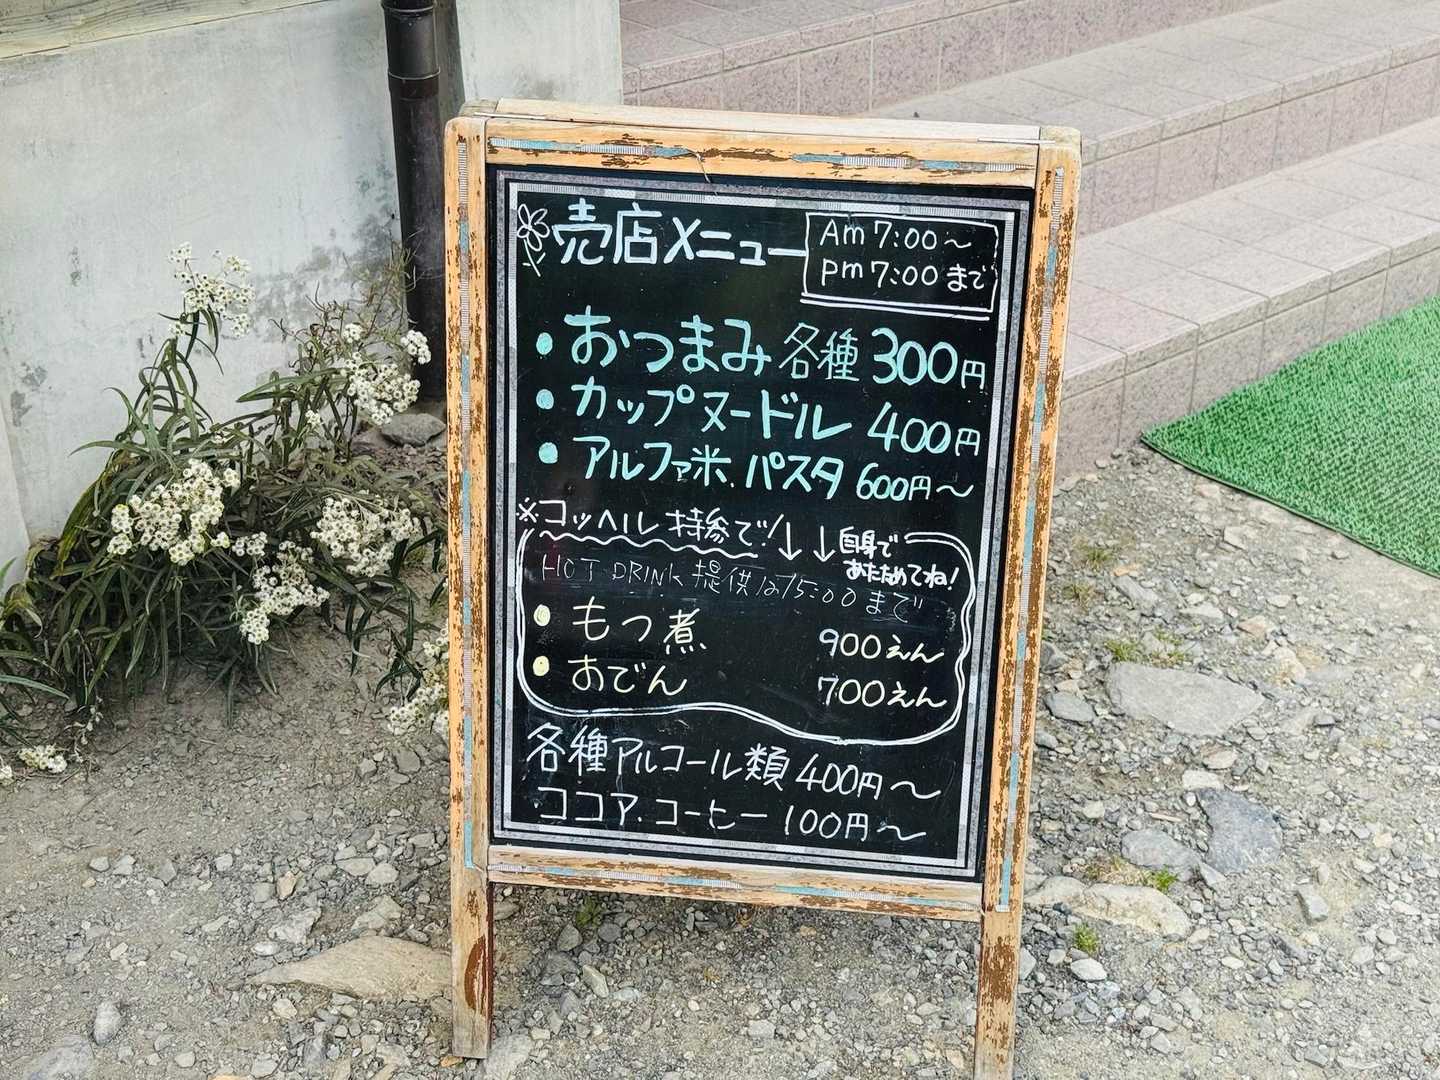 売店メニュー
Am 7:00〜
pm 7:00まで
・おつまみ各種 300円
・カップヌードル 400円
・アルファ米.パスタ 600円〜
※コッヘル持参で!↓↓
自身で
あたためてね!
HOT DRINK 提供は15:00まで
・もつ煮 900えん
・おでん 700えん
各種アルコール類 400円〜
ココア.コーヒー 100円〜